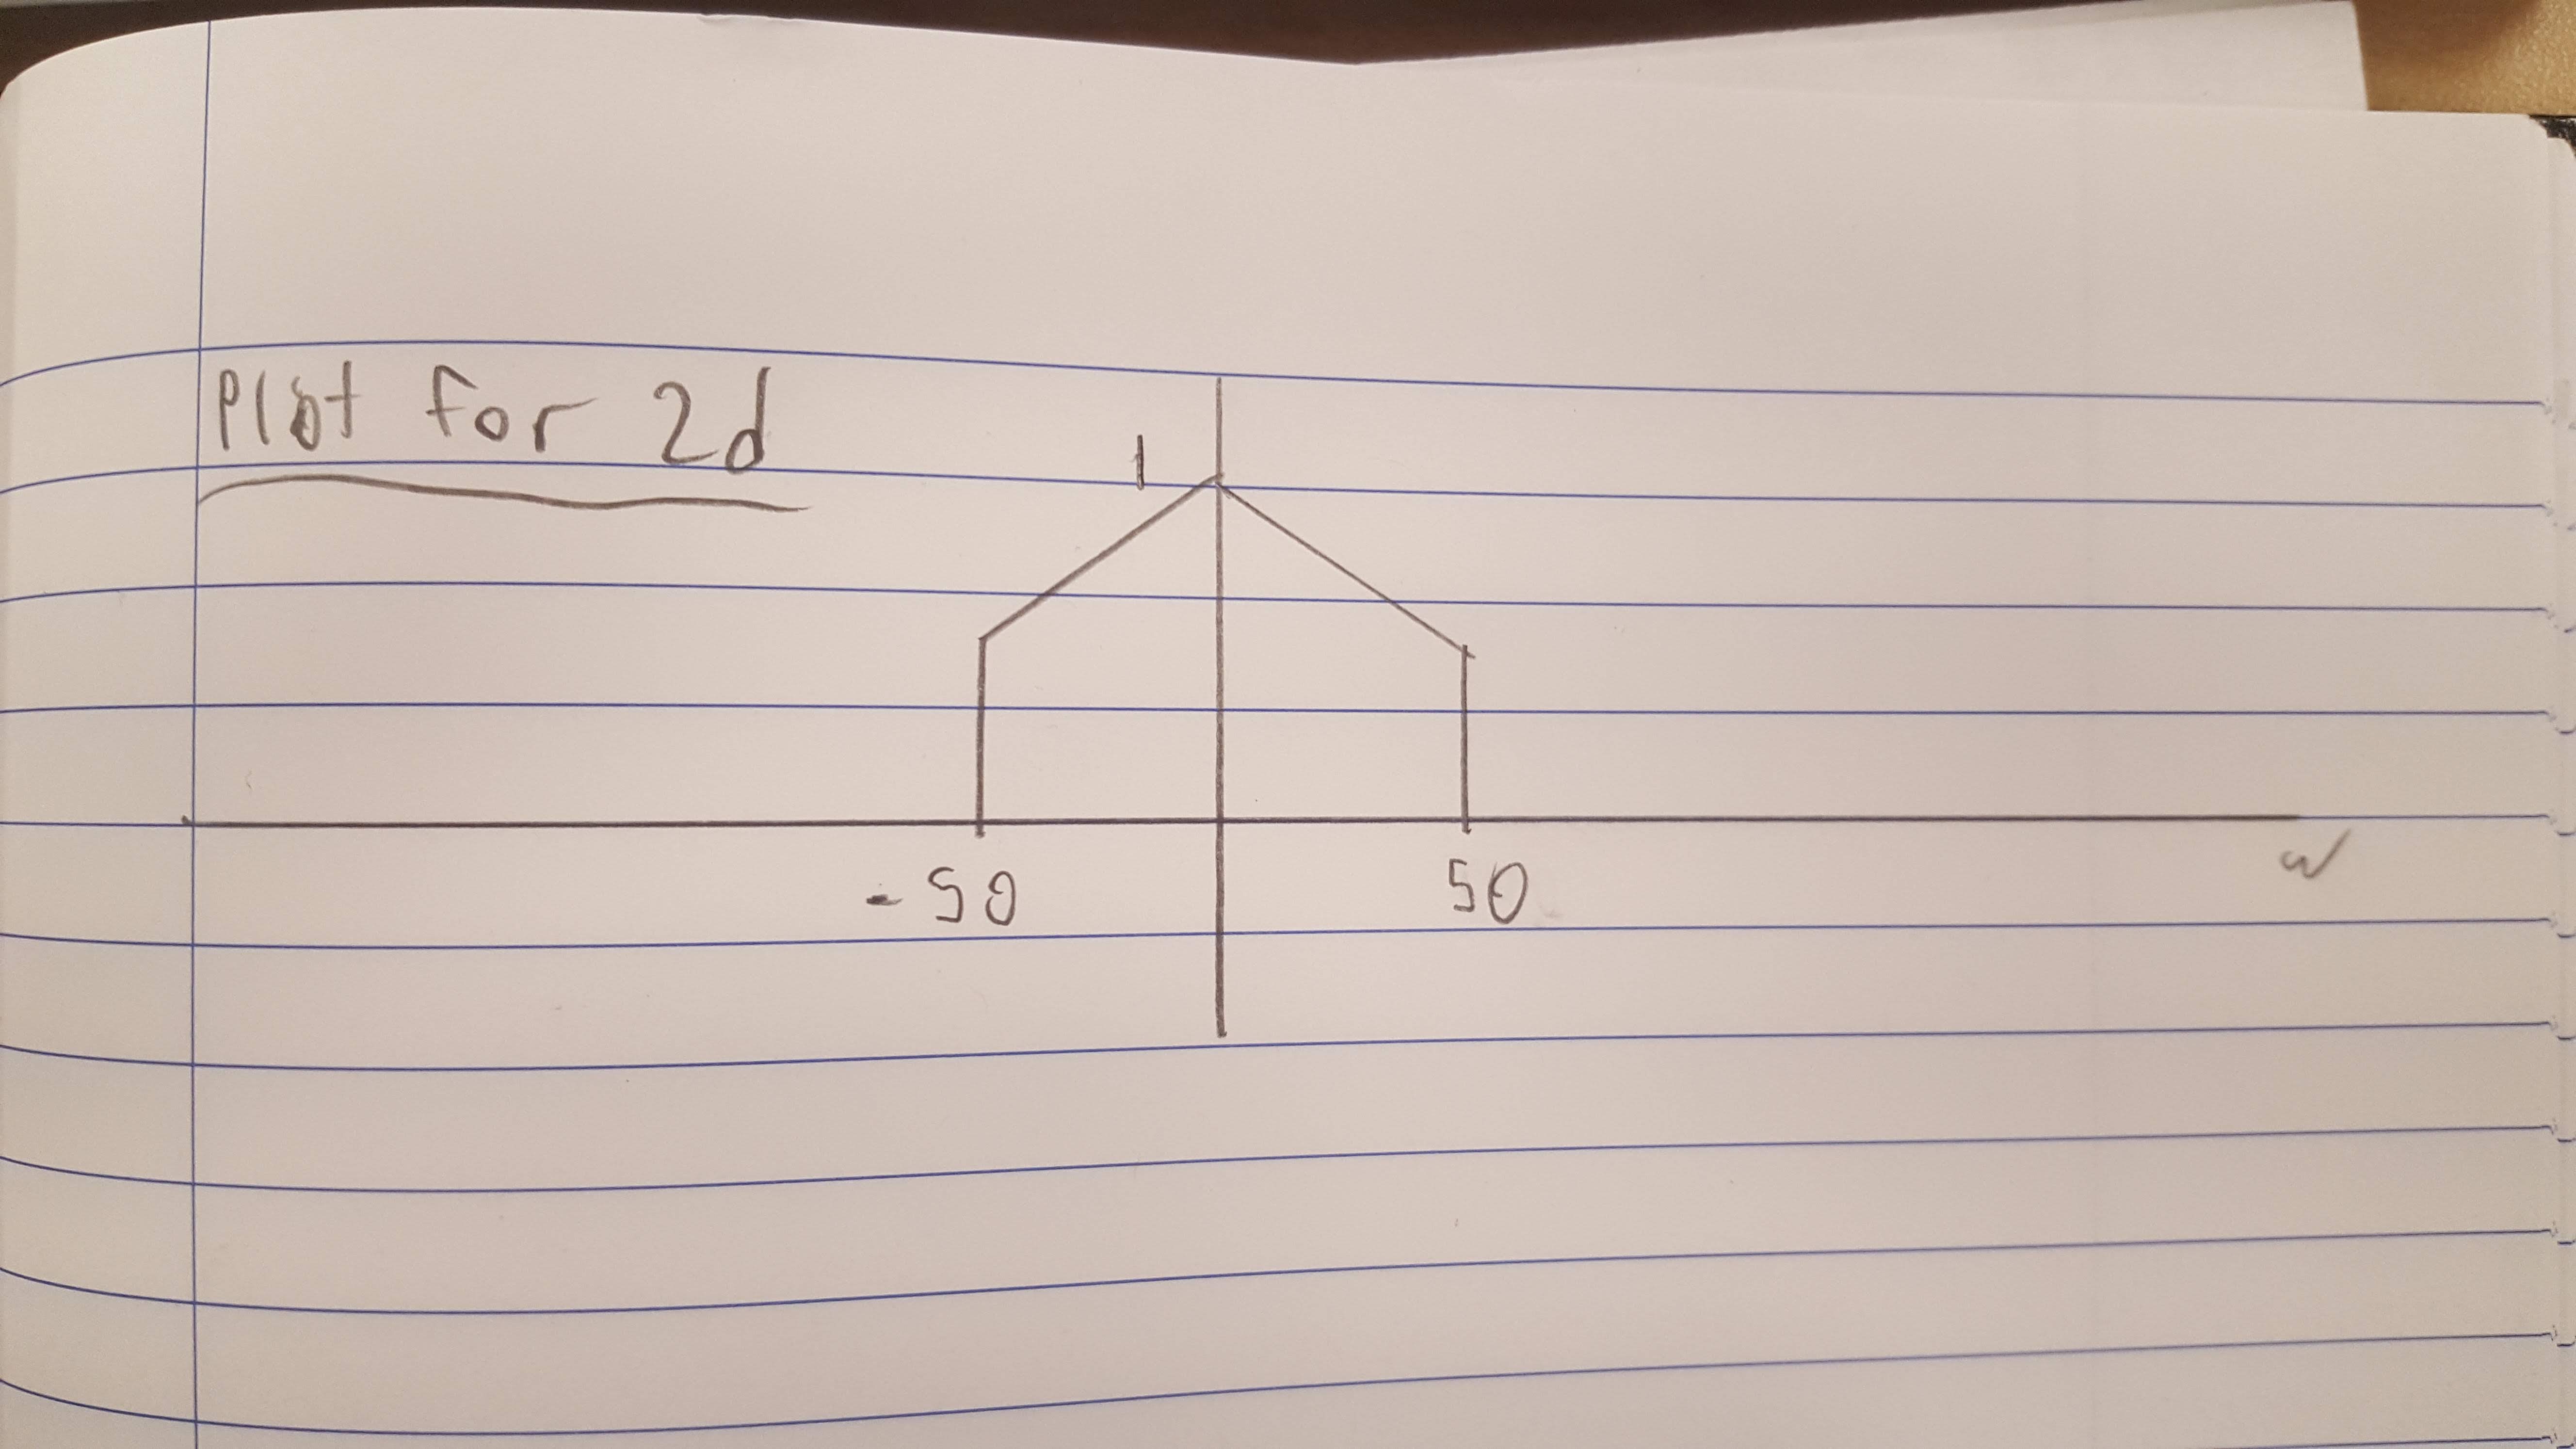 Plot for 2d
1
-50 50
w